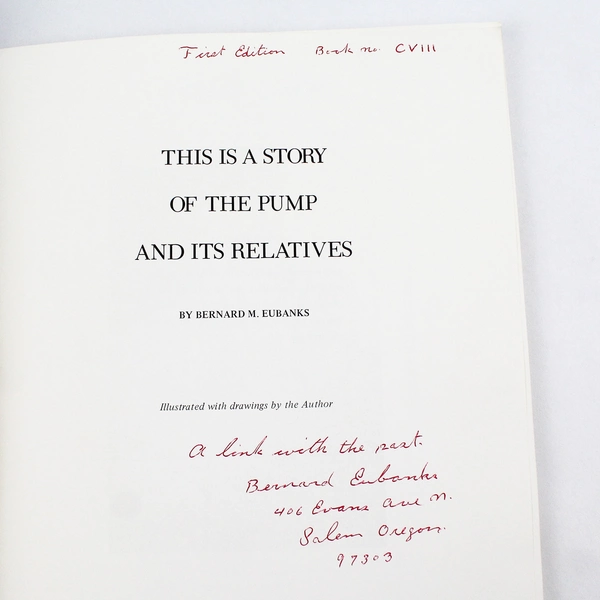 First Edition Book no. CVIII
THIS IS A STORY
OF THE PUMP
AND ITS RELATIVES
BY BERNARD M. EUBANKS
Illustrated with drawings by the Author
A link with the past.
Bernard Eubanks
406 Evans Ave N.
Salem Oregon.
97303